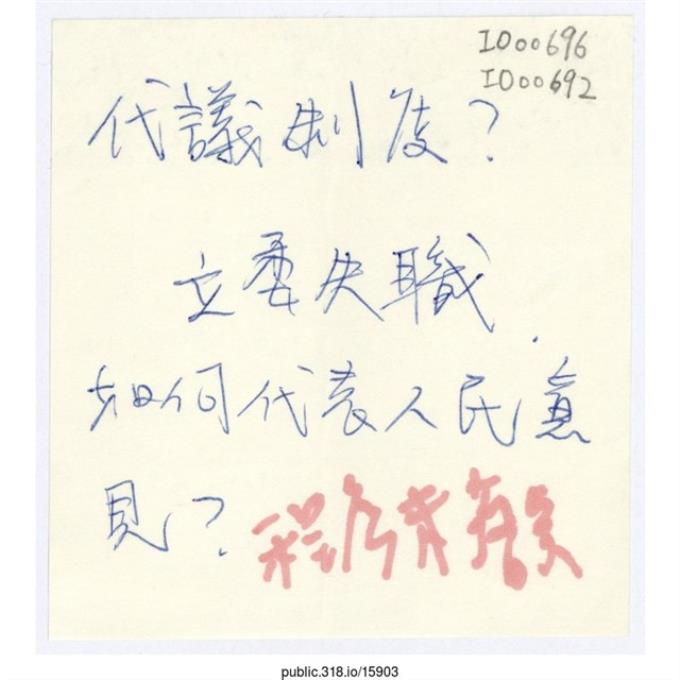 I000696
I000692
代議制度?
立委失職.
如何代表人民意
見?程序有瑕
public.318.io/15903